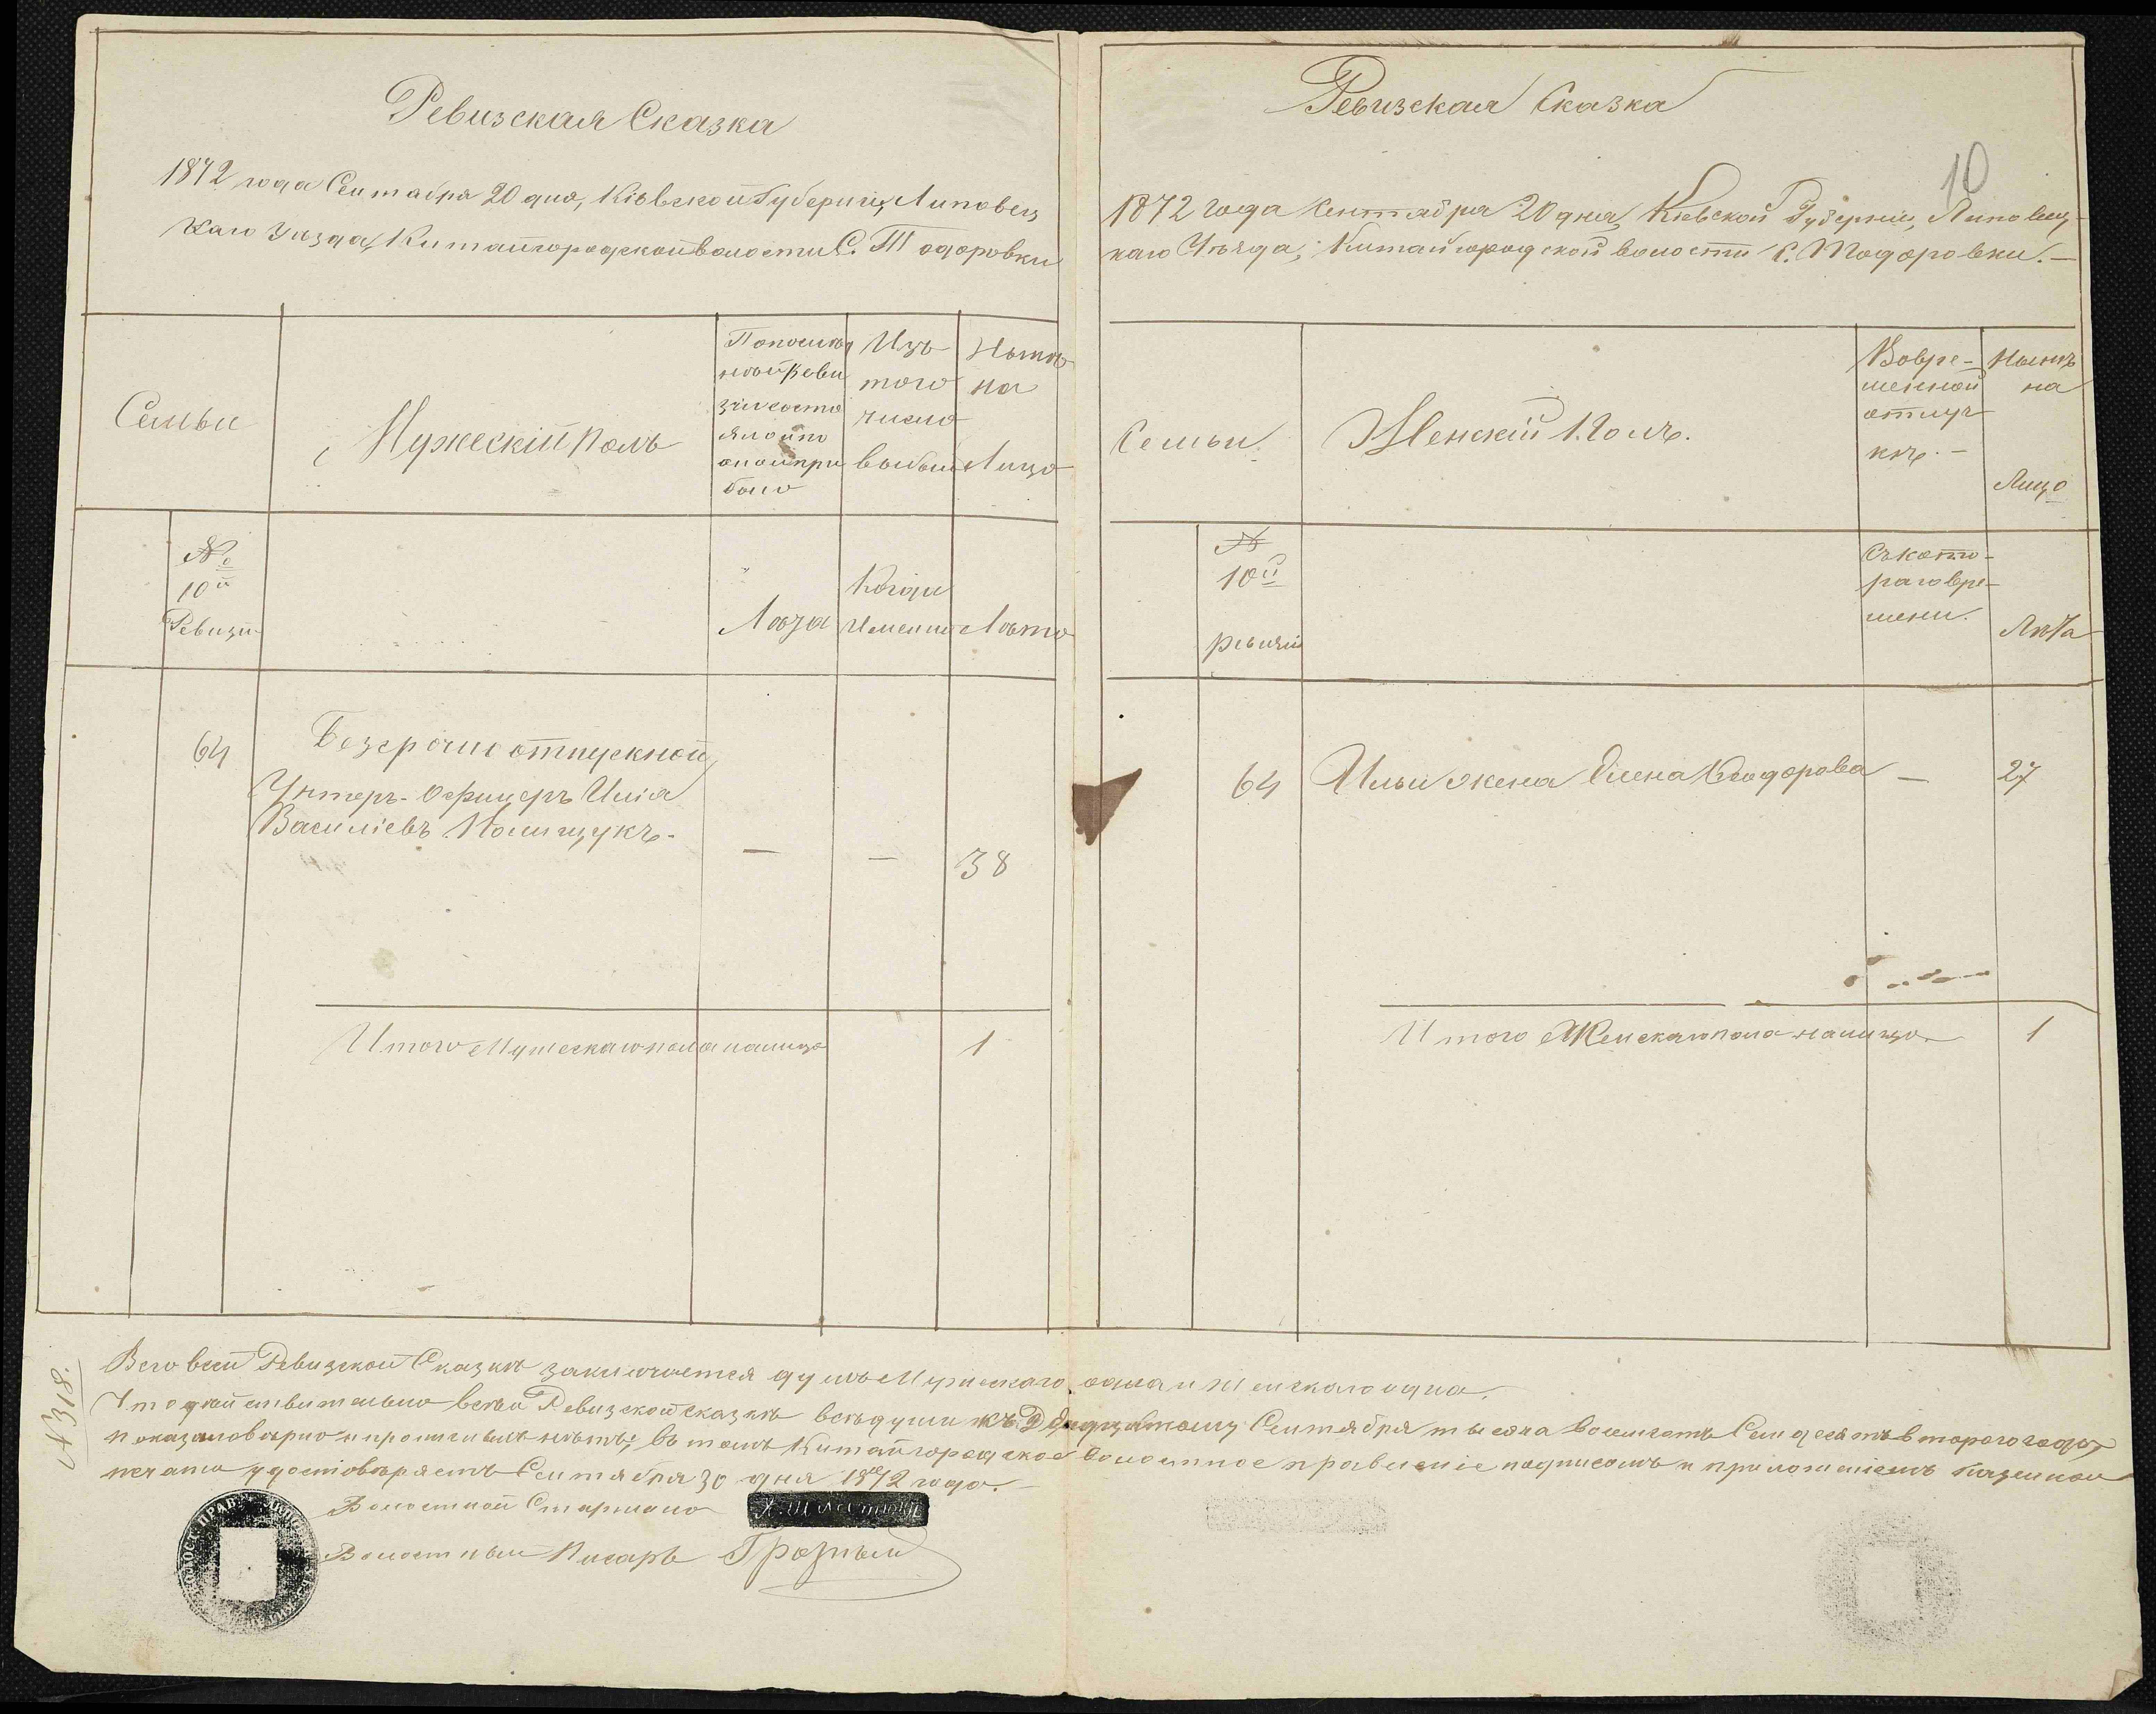 Ревизская Сказка
1872 года Сентабря 20 дня, Кіевской Губерніи, Липовец
каго Уѣзда, Китайгородской волости С. Тодоровки
Семьи
Мужескій полъ
По послѣд
ней реви
зіи состо
яло и по
оной при
было
Изъ
того
числа
выбыло
Нынѣ
на
Лицо
№
10й
Ревизіи
Лѣта
Когда
Именно
Лѣта
64
Безсрочно отпускной
Унтеръ-Офицеръ Илія
Василіевъ Полищукъ.
—
—
38
Итого Мужескаго пола налицо
1
Ревизская Сказка
10
1872 года Сентабря 20 дня, Кіевской Губерніи, Липовец-
каго Уѣзда, Китайгородской волости С. Тодоровки.—
Семьи
Женскій Полъ.
Вовре-
менной
отлуч
кѣ.—
Нынѣ
на
Лицо
№
10й
ревизіи
Съ кото-
раго вре-
мени.
Лѣта
64
Ильи жена Елена Феодорова
—
27
Итого Женскаго пола налицо.
1
№ 318.
Всего в сей Ревизской Сказкѣ заключается душъ Мужескаго одна и Женскаго одна.
Что дѣйствительно в сей Ревизской сказкѣ всѣ души къ Двадцатому Сентября тысяча восемьсотъ Семдесятъ втораго года,
показано вѣрно и прописныхъ нѣтъ; въ томъ Китайгородское Волостное правленіе подписомъ и приложеніемъ казенной
печати удостовѣряетъ Сентября 30 дня 1872 года.
Волостной Старшина
Волостный Писарь Грозный